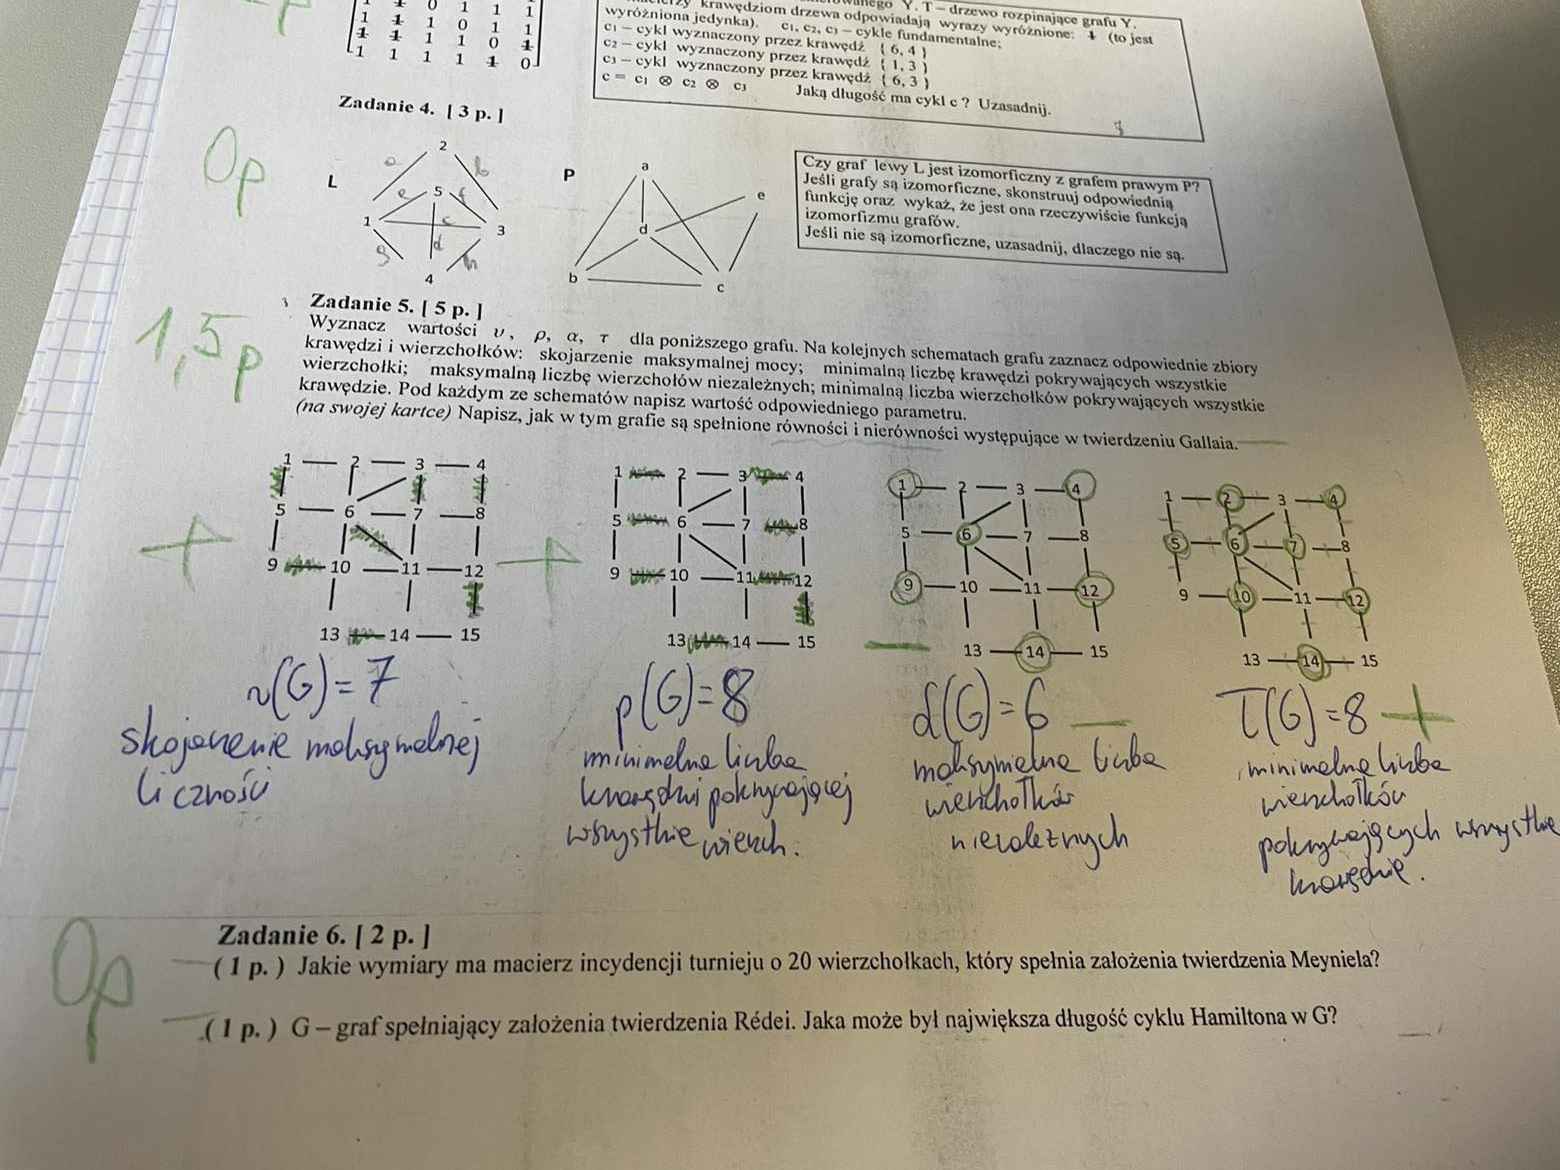 0 1 1 1
1 1 1 0 1 1
1 1 1 1 0 1
1 1 1 1 1 0
Y. T – drzewo rozpinające grafu Y.
krawędziom drzewa odpowiadają wyrazy wyróżnione: 1 (to jest
wyróżniona jedynka). c₁, c₂, c₃ – cykle fundamentalne;
c₁ – cykl wyznaczony przez krawędź { 6, 4 }
c₂ – cykl wyznaczony przez krawędź { 1, 3 }
c₃ – cykl wyznaczony przez krawędź { 6, 3 }
c = c₁ ⊗ c₂ ⊗ c₃ Jaką długość ma cykl c ? Uzasadnij.
Zadanie 4. [ 3 p. ]
0p
L
2
a b
e 5 f
1 c 3
g d h
4
P
a
e
d
b
c
Czy graf lewy L jest izomorficzny z grafem prawym P?
Jeśli grafy są izomorficzne, skonstruuj odpowiednią
funkcję oraz wykaż, że jest ona rzeczywiście funkcją
izomorfizmu grafów.
Jeśli nie są izomorficzne, uzasadnij, dlaczego nie są.
1,5p
Zadanie 5. [ 5 p. ]
Wyznacz wartości υ, ρ, α, τ dla poniższego grafu. Na kolejnych schematach grafu zaznacz odpowiednie zbiory
krawędzi i wierzchołków: skojarzenie maksymalnej mocy; minimalną liczbę krawędzi pokrywających wszystkie
wierzchołki; maksymalną liczbę wierzchołów niezależnych; minimalną liczba wierzchołków pokrywających wszystkie
krawędzie. Pod każdym ze schematów napisz wartość odpowiedniego parametru.
(na swojej kartce) Napisz, jak w tym grafie są spełnione równości i nierówności występujące w twierdzeniu Gallaia.
1 2 3 4
5 6 7 8
9 10 11 12
13 14 15
ν(G)=7
skojarzenie maksymalnej
liczności
1 2 3 4
5 6 7 8
9 10 11 12
13 14 15
ρ(G)=8
minimalna liczba
krawędzi pokrywającej
wszystkie wierzch.
1 2 3 4
5 6 7 8
9 10 11 12
13 14 15
α(G)=6 —
maksymalna liczba
wierzchołków
niezależnych
1 2 3 4
5 6 7 8
9 10 11 12
13 14 15
τ(G)=8 +
minimalna liczba
wierzchołków
pokrywających wszystkie
krawędzie.
0p
Zadanie 6. [ 2 p. ]
( 1 p. ) Jakie wymiary ma macierz incydencji turnieju o 20 wierzchołkach, który spełnia założenia twierdzenia Meyniela?
( 1 p. ) G – graf spełniający założenia twierdzenia Rédei. Jaka może był największa długość cyklu Hamiltona w G?